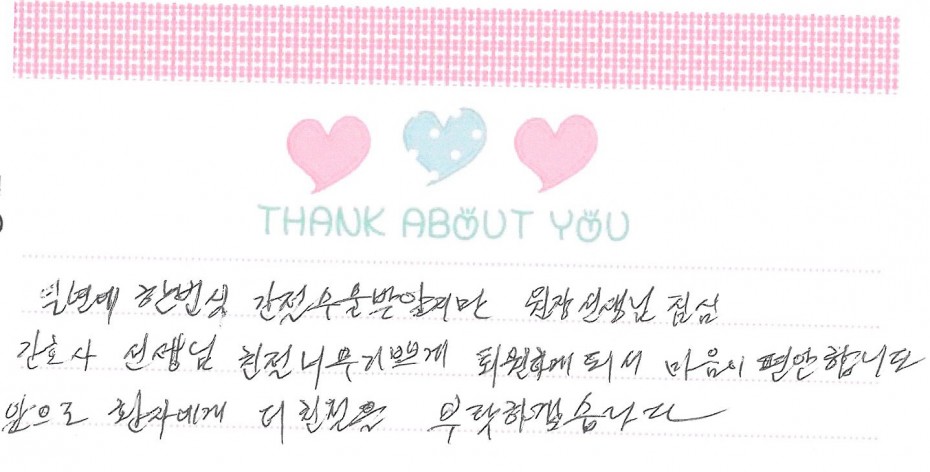 THANK ABOUT YOU
일년에 한번씩 간전우울받알지만 원장선생님 점심
간호사 선생님 친전너무기쁘게 퇴원하에되서 마음이 편안합니다
앞으로 환자에게 더 친절을 부탁하겠습니다